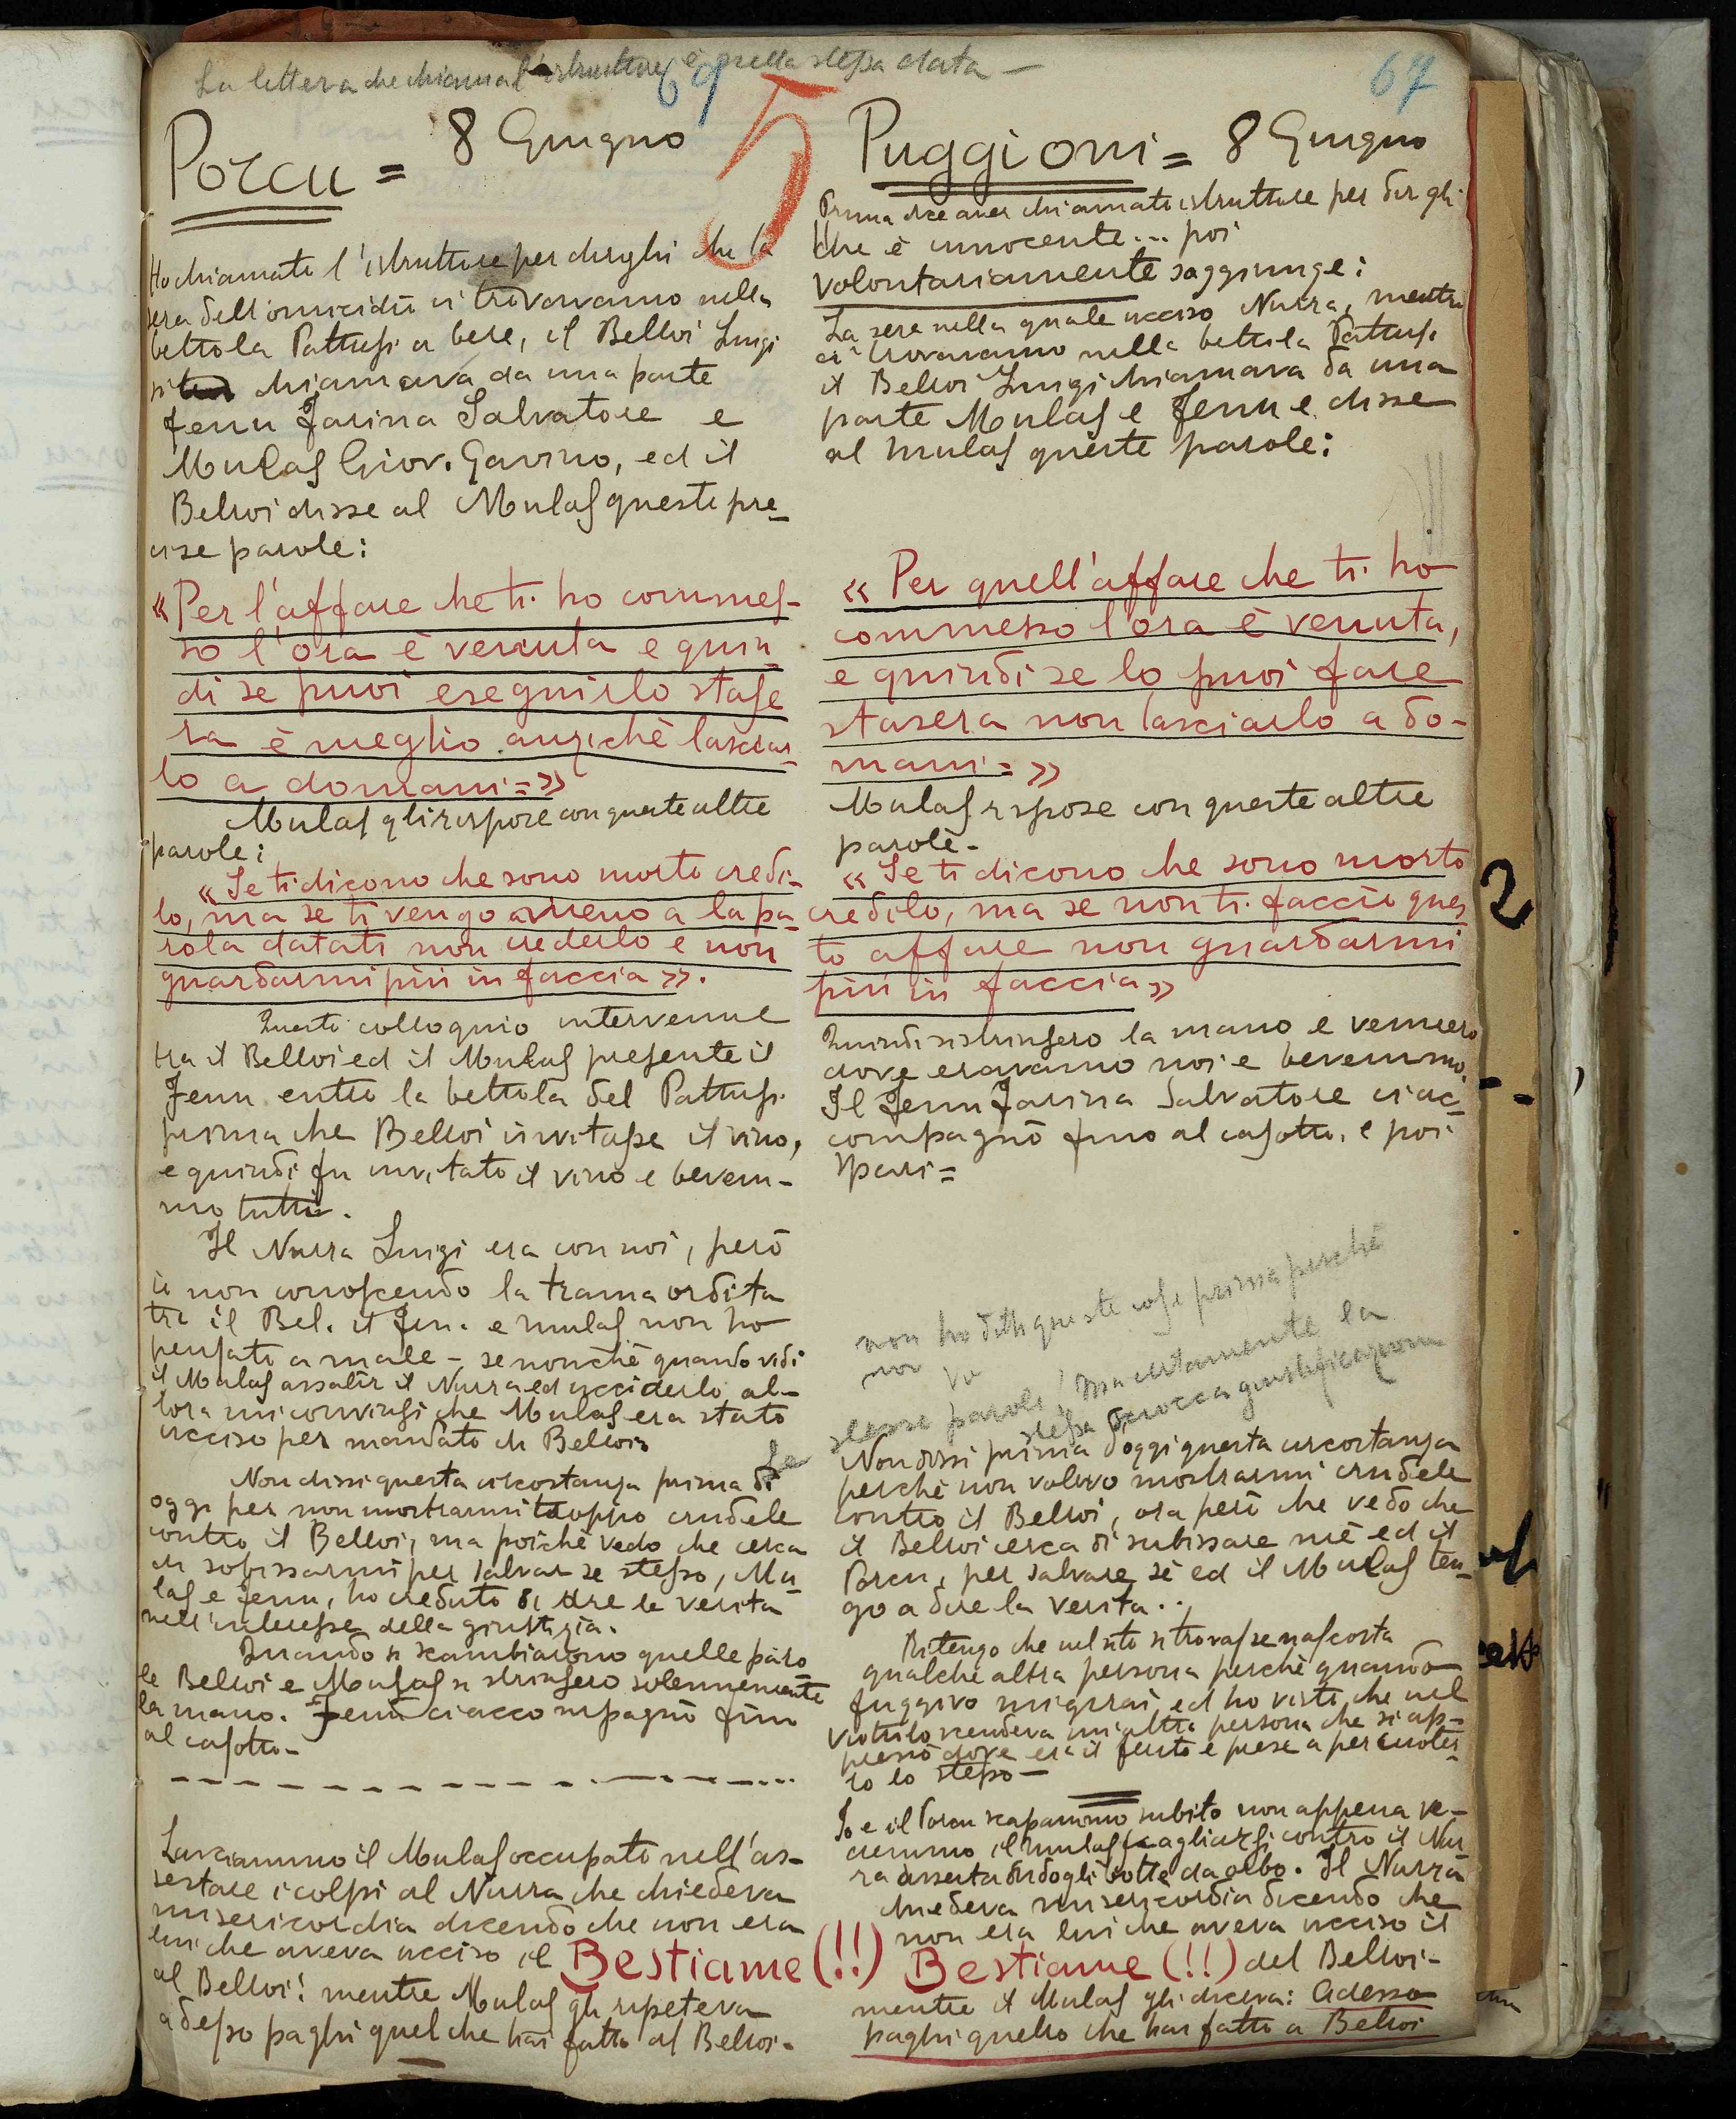 La lettera che chiama l'istruttore è nella stessa data —
69
67
5
Porcu = 8 Giugno
Ho chiamato l'istruttore per dirghi che la
sera dell'omicidio ci trovavamo nella
bettola Pattusi a bere, il Belloi Luigi
si chiamava da una parte
Fenu Farina Salvatore e
Mulas Giov. Gavino, ed il
Belloi disse al Mulas queste pre-
cise parole:
«Per l'affare che ti ho commes-
so l'ora è venuta e quin
di se puoi eseguirlo stase
ra è meglio anzichè lasciar-
lo a domani =»
Mulas gli rispose con queste altre
parole:
«Se ti dicono che sono morto credi-
lo, ma se ti vengo a meno a la pa-
rola datati non crederlo e non
guardarmi più in faccia».
Questo colloquio intervenne
tra il Belloi ed il Mulas presente il
Fenu entro la bettola del Pattusi
prima che Belloi invitasse il vino,
e quindi fu invitato il vino e bevem-
mo tutti.
Il Nurra Luigi era con noi, però
io non conoscendo la trama ordita
tra il Bel. il Fen. e Mulas non ho
pensato a male – se nonchè quando vidi
il Mulas assalir il Nurra ed ucciderlo al-
lora mi convinsi che Mulas era stato
ucciso per mandato di Belloi
Non dissi questa circostanza prima di
oggi per non mostrarmi troppo crudele
contro il Belloi, ma poichè vedo che cerca
di sobissarmi per salvar se stesso, Mu-
las e Fenu, ho creduto di dire la verità
nell'interesse della giustizia.
Quando si scambiarono quelle paro
le Belloi e Mulas si strinsero solennemente
la mano. Fenu ci accompagnò fino
al casotto –
Lasciammo il Mulas occupato nell'as-
sestare i colpi al Nurra che chiedeva
misericordia dicendo che non era
lui che aveva ucciso il Bestiame (!!)
al Belloi! mentre Mulas gli ripeteva
adesso paghi quel che hai fatto al Belloi.
Puggioni = 8 Giugno
Prima dice aver chiamato istruttore per dirgli
che è innocente... poi
volontariamente soggiunge:
La sera nella quale ucciso Nurra, mentre
ci trovavamo nella bettola Pattusi
il Belloi Luigi chiamava da una
parte Mulas e Fenu e disse
al Mulas queste parole:
« Per quell'affare che ti ho
commesso l'ora è venuta,
e quindi se lo puoi fare
stasera non lasciarlo a do-
mani = »
Mulas rispose con queste altre
parole –
« Se ti dicono che sono morto
credilo, ma se non ti faccio ques
to affare non guardarmi
più in faccia»
Quindi si strinsero la mano e vennero
dove eravamo noi e bevemmo.
Il Fenu Farina Salvatore ci ac-
compagnò fino al casotto, e poi
sparì =
non ho detto queste cose prima perchè
non
stesse parole! ma certamente la
stessa sciocca giustificazione
Non dissi prima d'oggi questa circostanza
perchè non volevo mostrarmi crudele
contro il Belloi, ora però che vedo che
il Belloi cerca di subissare mè ed il
Porcu, per salvare sè ed il Mulas ten-
go a dire la verità..
Ritengo che nel sito si trovasse nascosta
qualche altra persona perchè quando
fuggivo mi girai ed ho visto che nel
viottolo scendeva un'altra persona che si ap-
pressò dove era il ferito e prese a percuoter-
lo lo stesso –
Io e il Porcu scapammo subito non appena ve-
demmo il Mulas scagliarsi contro il Nur
ra assestandogli botte da orbo. Il Nurra
chiedeva misericordia dicendo che
non era lui che aveva ucciso il
Bestiame (!!) del Belloi –
mentre il Mulas gli diceva: Adesso
paghi quello che hai fatto a Belloi
2